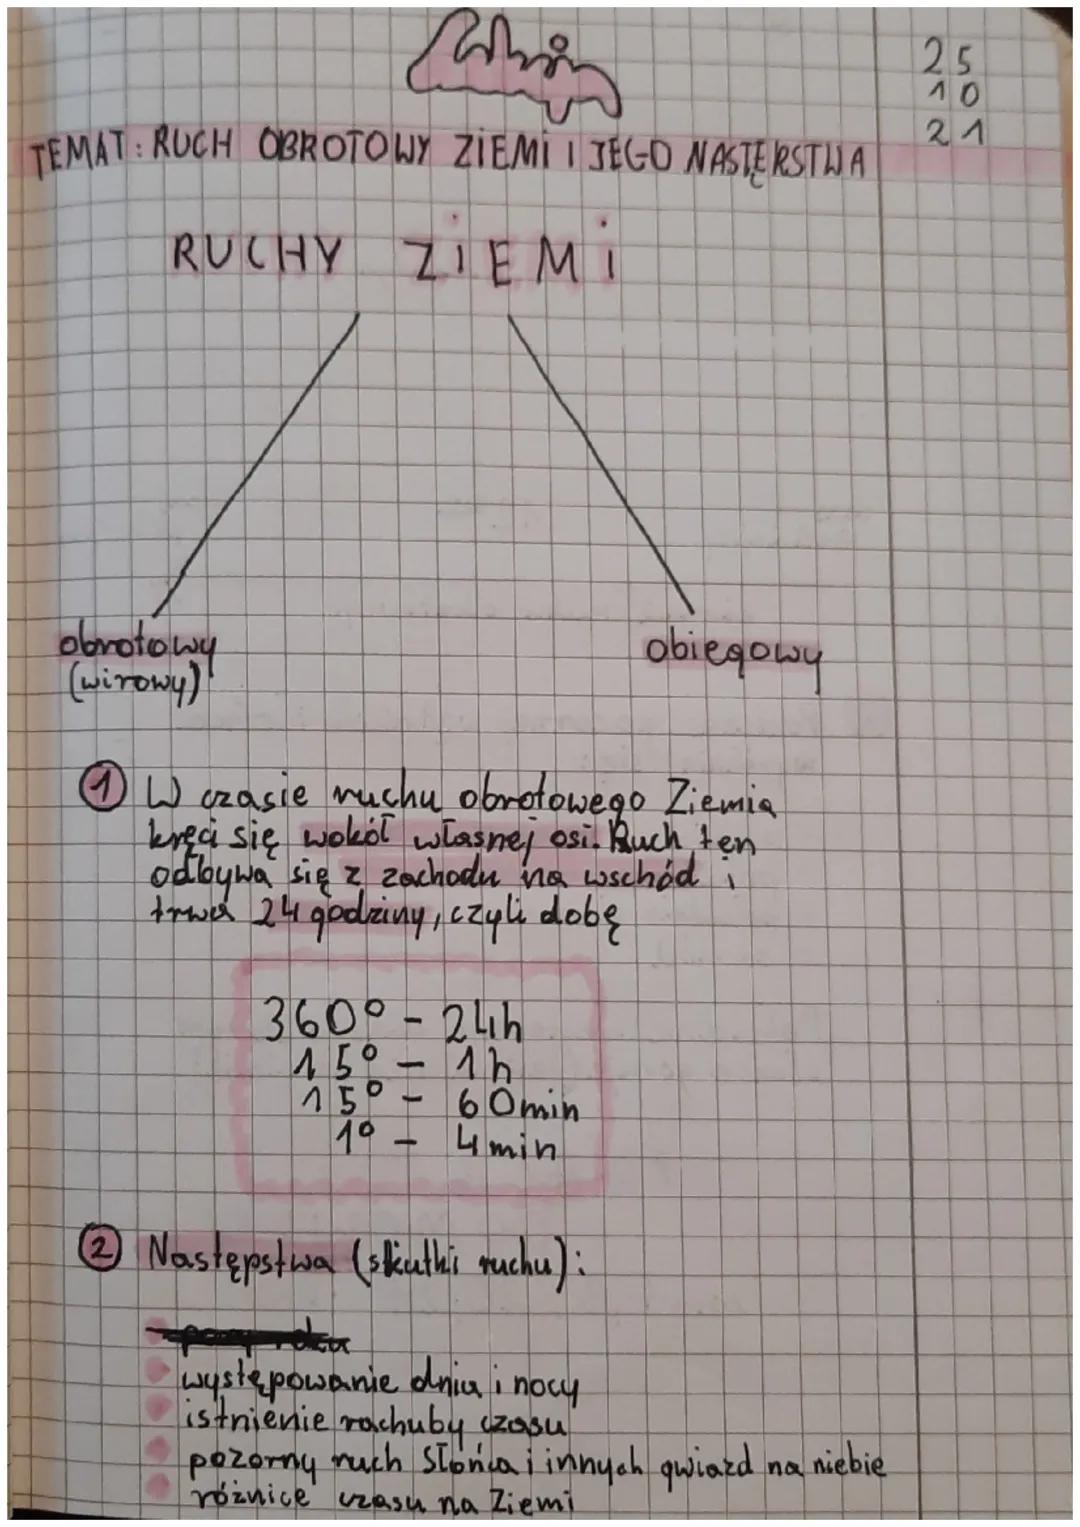 25
10
21
TEMAT: RUCH OBROTOWY ZiEMi I JEGO NASTĘRSTWA
RUCHY ZiEMi
obrotowy
(wirowy)
obiegowy
1 W czasie ruchu obrotowego Ziemia
kręci się wokół własnej osi. Ruch ten
odbywa się z zachodu na wschód i
trwa 24 godziny, czyli dobę
360° - 24h
15° - 1h
15° - 60min
1° - 4min
2 Następstwa (skutki ruchu):
występowanie dnia i nocy
istnienie rachuby czasu
pozorny ruch Słońca i innych gwiazd na niebie
różnice czasu na Ziemi